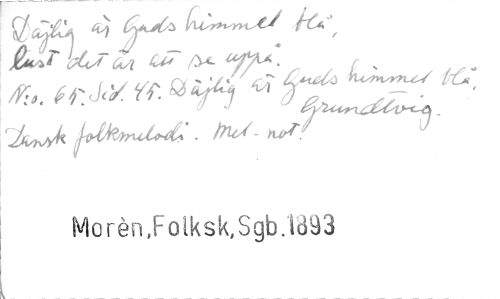 Däjlig är Guds himmel blå,
lust det är att se uppå.
N:o. 65. Sid. 45. Däjlig är Guds himmel blå,
Grundtvig.
Dansk folkmelodi. Mel-not.
Morèn,Folksk,Sgb.1893